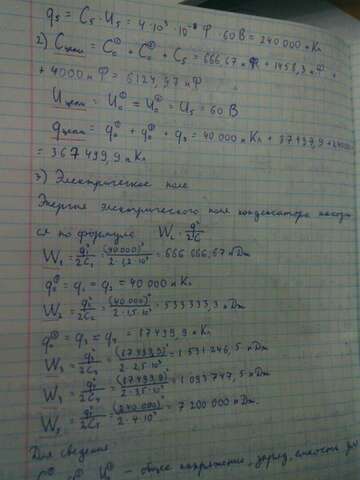 q₅ = C₅ · U₅ = 4·10³·10⁻⁹ Ф · 60 В = 240 000 н Кл
2) Cцепи = C₀^① + C₀^② + C₅ = 666,67 н Ф + 1458,3 н Ф +
+ 4000 н Ф = 6124,97 н Ф
Uцепи = U₀^① = U₀^② = U₅ = 60 В
qцепи = q₀^① + q₀^② + q₅ = 40 000 н Кл + 87 499,9 + 240000
= 367 499,9 н Кл
3) Электрическое поле
Энергия электрического поля конденсатора находит
ся по формуле W = q²/2C
W₁ = q₁²/2C₁ = (40 000)²/2·1,2·10³ = 666 666,67 нДж
q₀^① = q₁ = q₂ = 40 000 н Кл
W₂ = q₂²/2C₂ = (40 000)²/2·1,5·10³ = 533 333,3 нДж
q₀^② = q₃ = q₄ = 87 499,9 н Кл
W₃ = q₃²/2C₃ = (87 499,9)²/2·2,5·10³ = 1 531 246,5 нДж
W₄ = q₄²/2C₄ = (87 499,9)²/2·3,5·10³ = 1 093 747,5 нДж
W₅ = q₅²/2C₅ = (240 000)²/2·4·10³ = 7 200 000 нДж.
Для сведения:
– общее напряжение, заряд, емкость